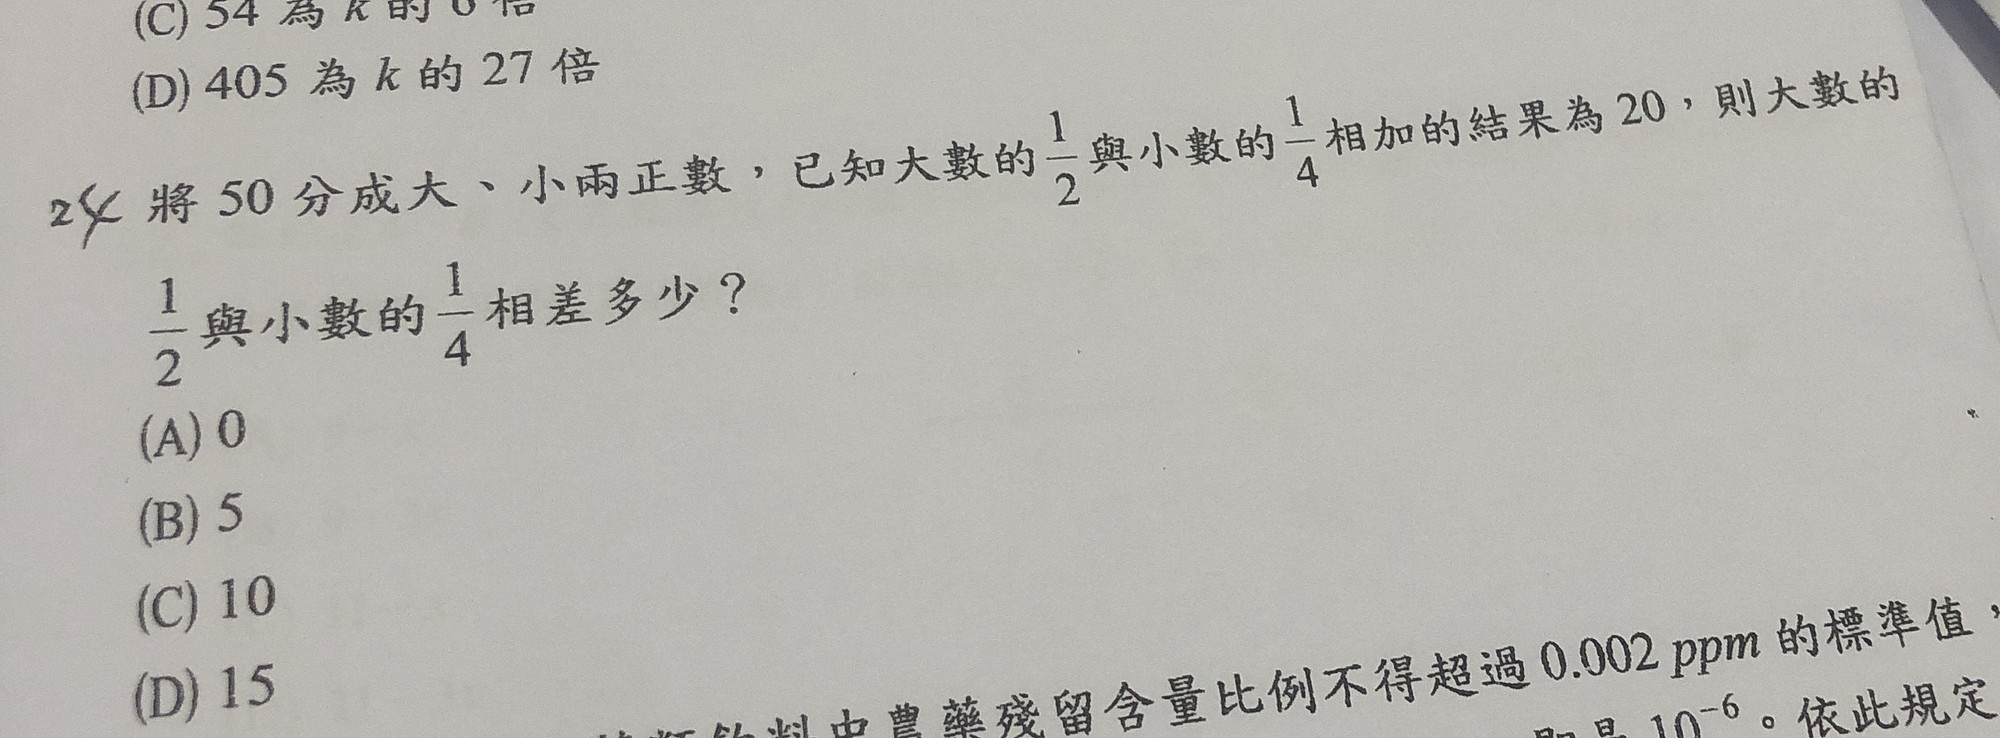 (C) 54 為 k 的 6 倍
(D) 405 為 k 的 27 倍
24 將 50 分成大、小兩正數，已知大數的 1/2 與小數的 1/4 相加的結果為 20，則大數的
1/2 與小數的 1/4 相差多少？
(A) 0
(B) 5
(C) 10
(D) 15
飲料中農藥殘留含量比例不得超過 0.002 ppm 的標準值，
10⁻⁶。依此規定